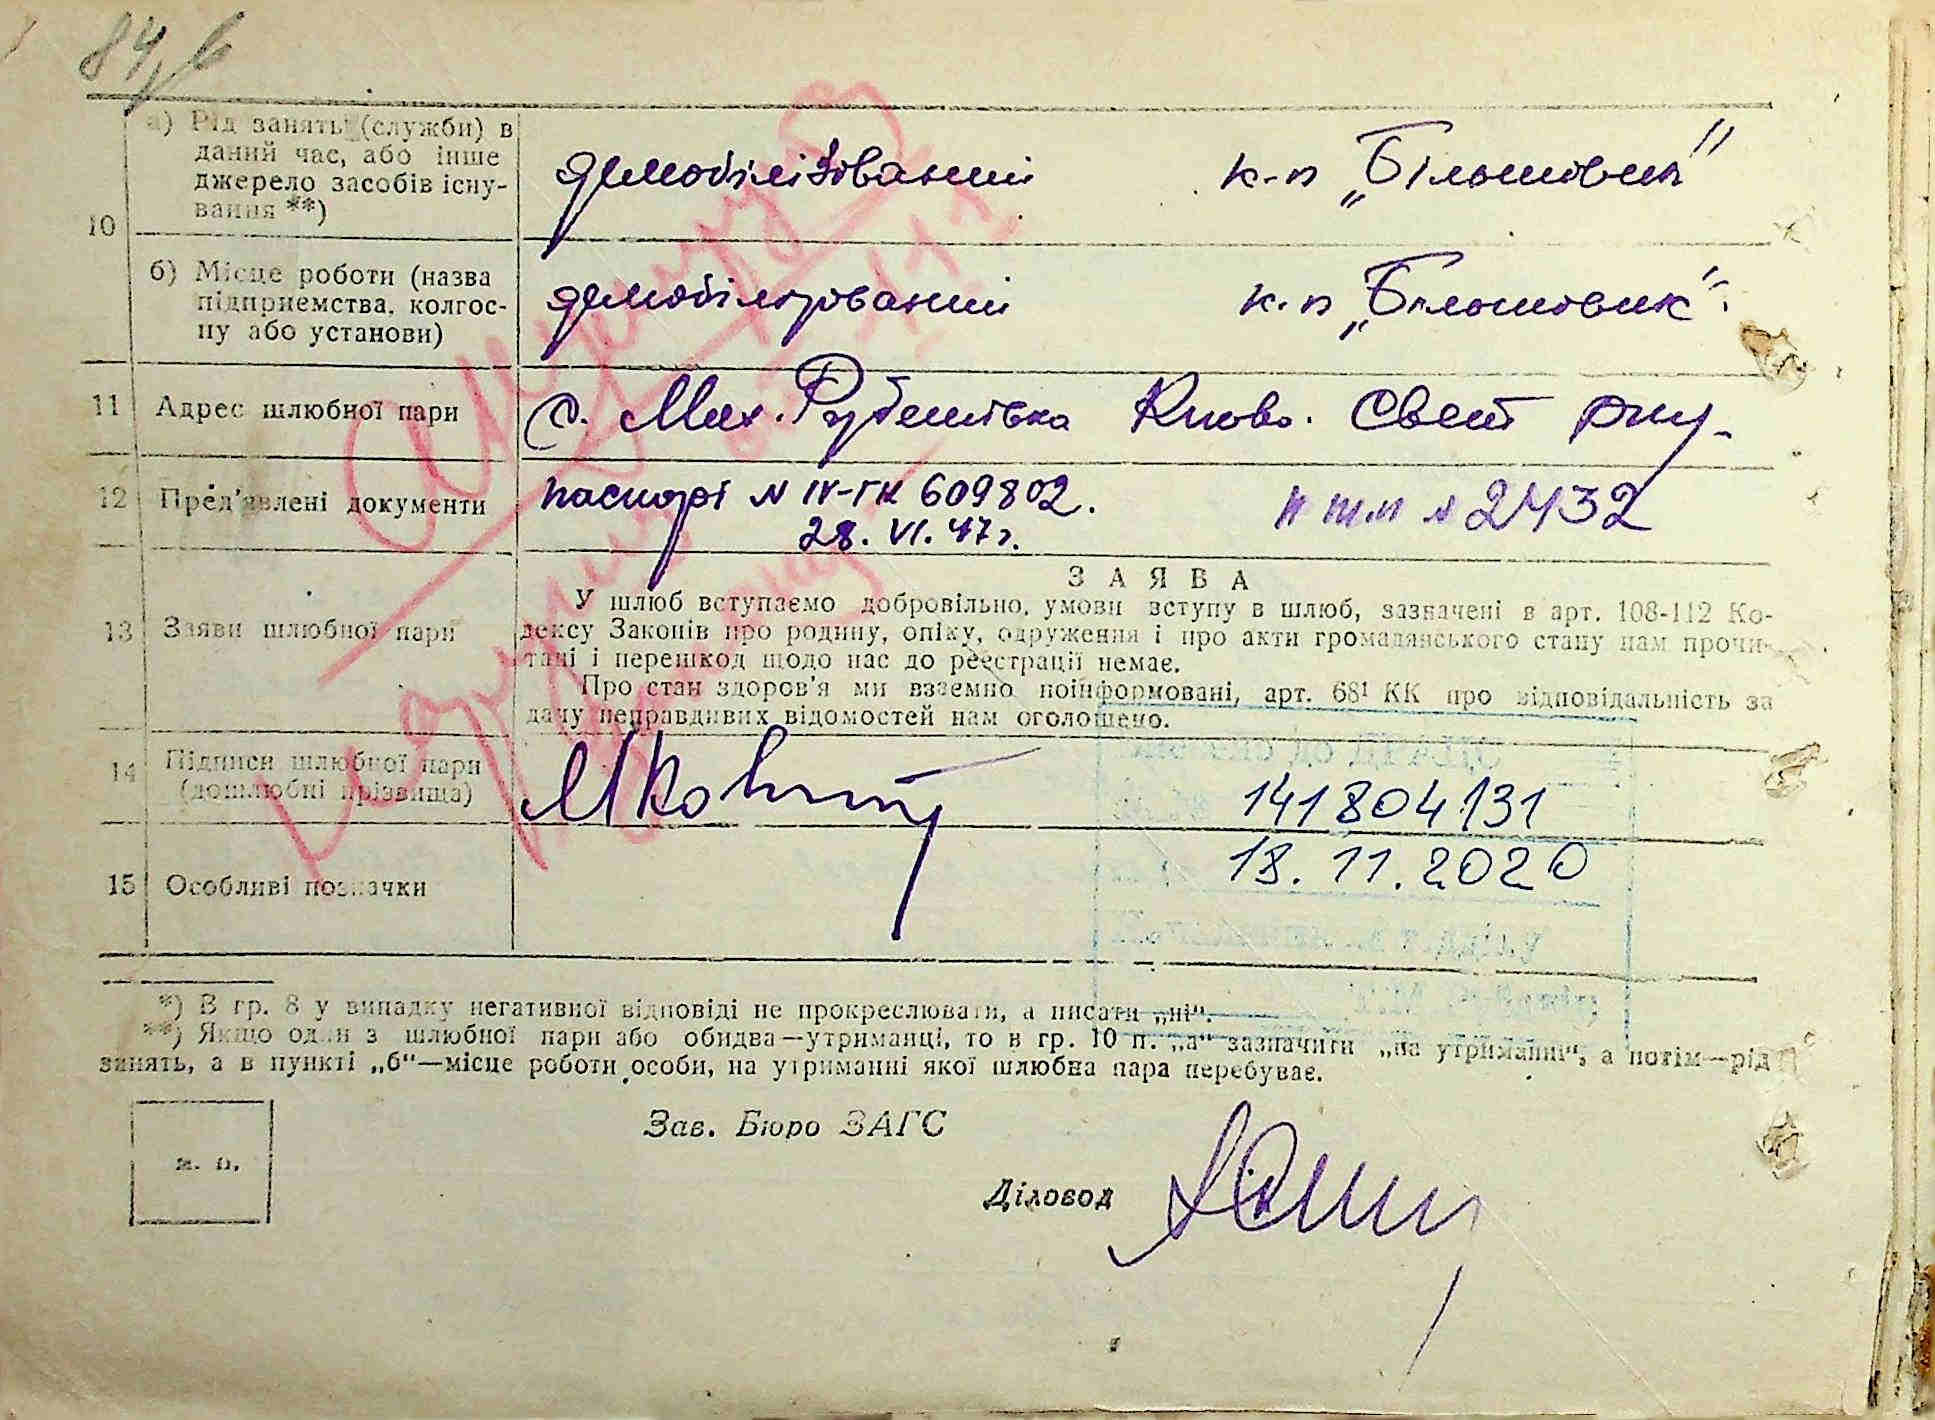 84, б
а) Рід занять (служби) в даний час, або інше джерело засобів існування **)
демобілізований к-п „Більшовик"
10
б) Місце роботи (назва підприємства, колгоспу або установи)
демобілізований к-п „Більшовик"
11 Адрес шлюбної пари
с. Мих. Рубешівка
12 Пред'явлені документи
паспорт N IV-ГК 609802. N 2432
28. VI. 47 г.
13 Заяви шлюбної пари
ЗАЯВА
У шлюб вступаємо добровільно, умови вступу в шлюб, зазначені в арт. 108-112 Ко-
дексу Законів про родину, опіку, одруження і про акти громадянського стану нам прочи-
тані і перешкод щодо нас до реєстрації немає.
Про стан здоров'я ми взаємно поінформовані, арт. 68¹ КК про відповідальність за
дачу неправдивих відомостей нам оголошено.
14 Підписи шлюбної пари (дошлюбні прізвища)
141804131
18.11.2020
15 Особливі позначки
*) В гр. 8 у випадку негативної відповіді не прокреслювати, а писати „ні".
**) Якщо один з шлюбної пари або обидва—утриманці, то в гр. 10 п. „а" зазначити „на утриманні", а потім—рід
занять, а в пункті „б"—місце роботи особи, на утриманні якої шлюбна пара перебуває.
Зав. Бюро ЗАГС
м. п.
Діловод